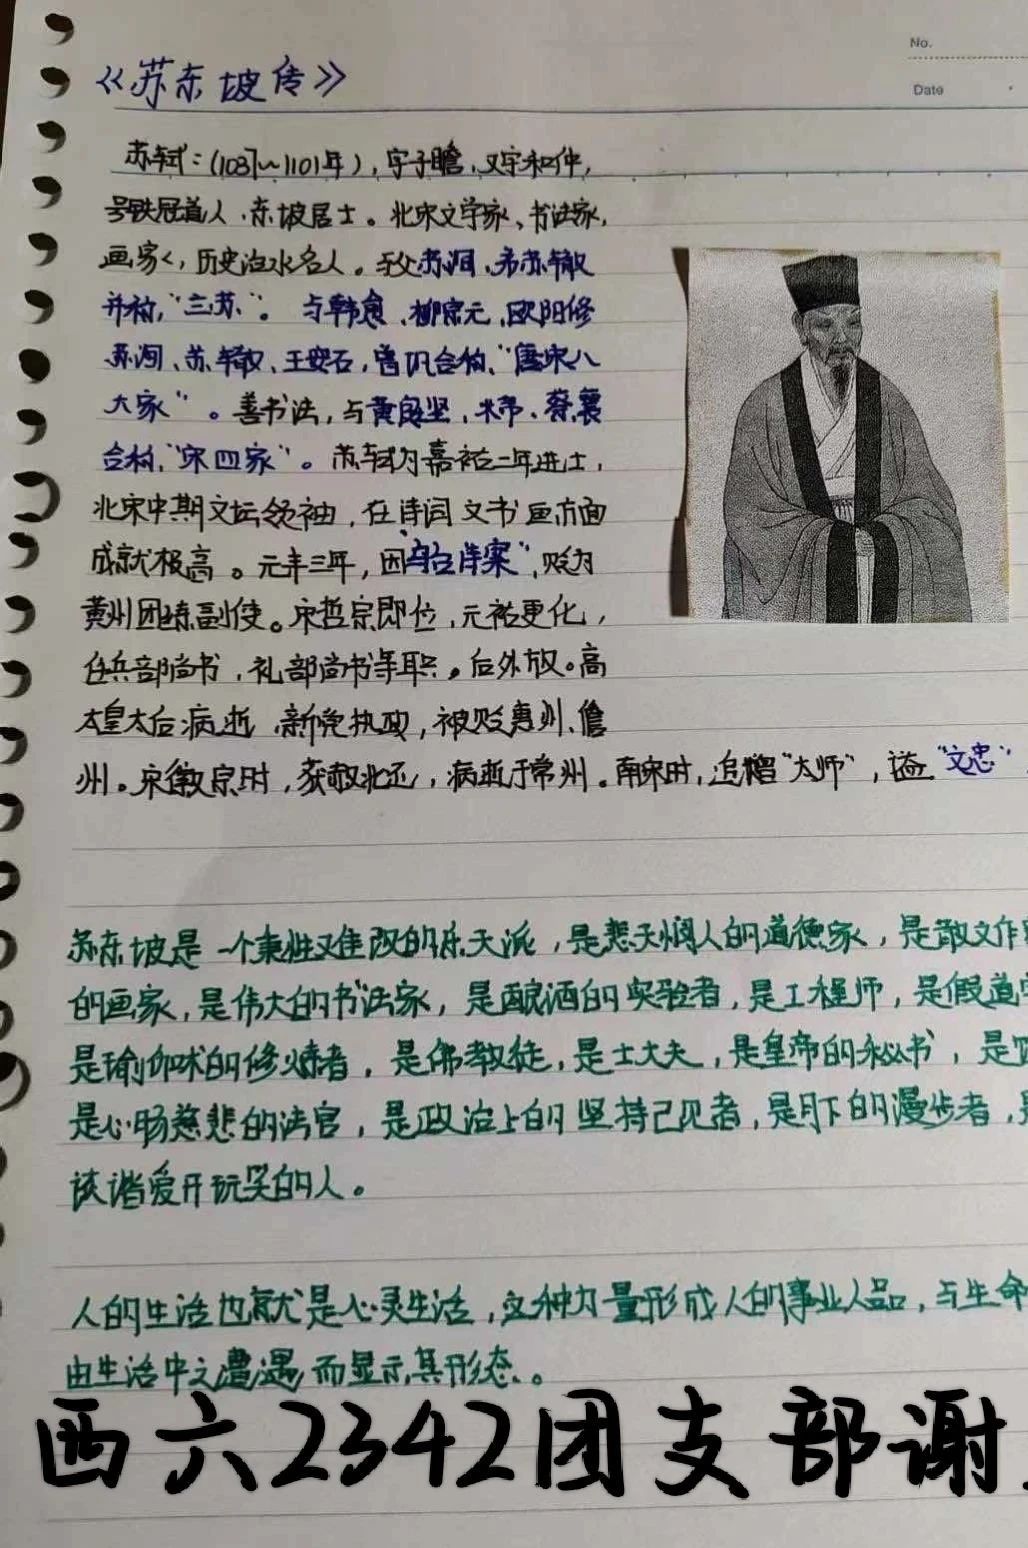 No.
《苏东坡传》
Date
苏轼：(1037～1101年)，字子瞻，又字和仲，
号铁冠道人、东坡居士。北宋文学家、书法家，
画家，历史治水名人。与父苏洵、弟苏辙
并称"三苏"。与韩愈、柳宗元、欧阳修
苏洵、苏辙、王安石，曾巩合称、"唐宋八
大家"。善书法，与黄庭坚，米芾、蔡襄
合称，"宋四家"。苏轼为嘉祐二年进士，
北宋中期文坛领袖，在诗词文书画方面
成就极高。元丰三年，因"乌台诗案"，贬为
黄州团练副使。宋哲宗即位，元祐更化，
任兵部尚书，礼部尚书等职。后外放。高
太皇太后病逝，新党执政，被贬惠州、儋
州。宋徽宗时，获赦北还，病逝于常州。南宋时，追赠"太师"，谥"文忠"
苏东坡是一个秉性难改的乐天派，是悲天悯人的道德家，是散文作
的画家，是伟大的书法家，是酿酒的实验者，是工程师，是假道
是瑜伽术的修炼者，是佛教徒，是士大夫，是皇帝的秘书，是
是心肠慈悲的法官，是政治上的坚持己见者，是月下的漫步者，
诙谐爱开玩笑的人。
人的生活也就是心灵生活，这种力量形成人的事业人品，与生命
由生活中之遭遇而显示其形态。
西六2342团支部谢